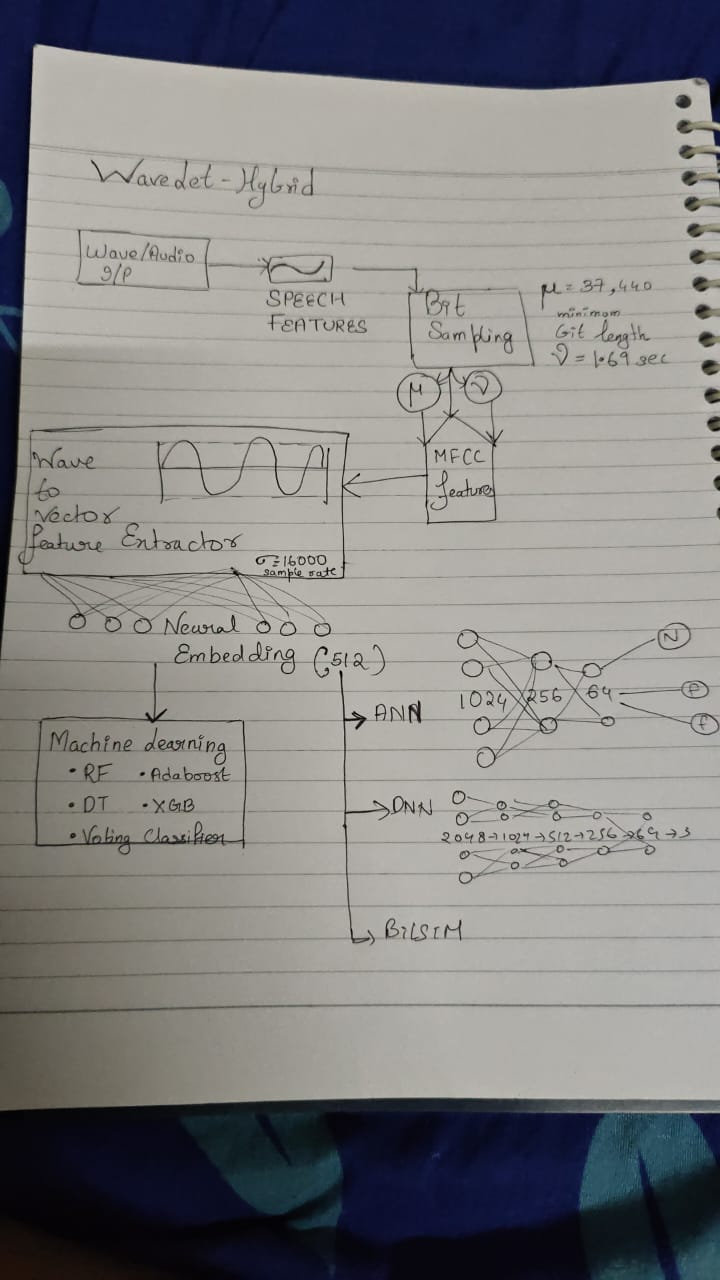 Wavedet-Hybrid
Wave/Audio
I/P
SPEECH
FEATURES
Bit
Sampling
μ = 37,440
minimum
Git length
ν = 1.69 sec
μ
ν
MFCC
features
Wave
to
Vector
feature Extractor
σ=16000
sample rate
Neural
Embedding (512)
ANN
1024
256
64
N
P
f
Machine Learning
• RF • Adaboost
• DT • XGB
• Voting Classifier
DNN
2048→1024→512→256→64→3
BiLSTM